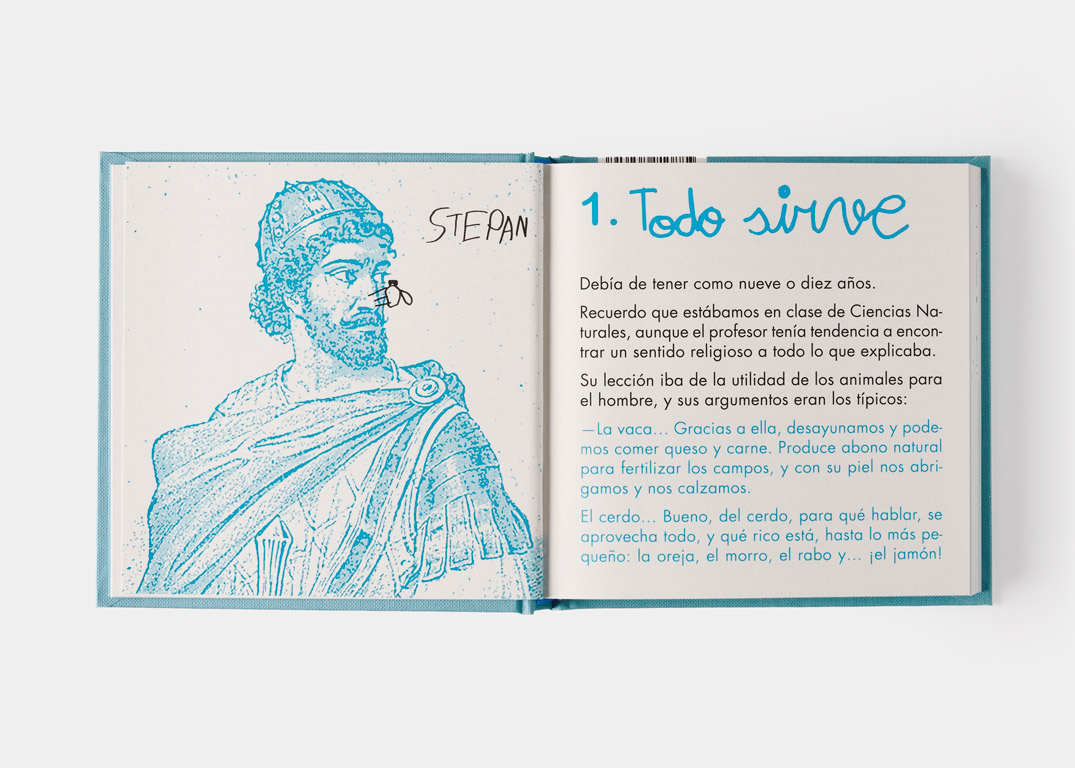 STEPAN
1. Todo sirve
Debía de tener como nueve o diez años.
Recuerdo que estábamos en clase de Ciencias Na-
turales, aunque el profesor tenía tendencia a encon-
trar un sentido religioso a todo lo que explicaba.
Su lección iba de la utilidad de los animales para
el hombre, y sus argumentos eran los típicos:
—La vaca... Gracias a ella, desayunamos y pode-
mos comer queso y carne. Produce abono natural
para fertilizar los campos, y con su piel nos abri-
gamos y nos calzamos.
El cerdo... Bueno, del cerdo, para qué hablar, se
aprovecha todo, y qué rico está, hasta lo más pe-
queño: la oreja, el morro, el rabo y... ¡el jamón!